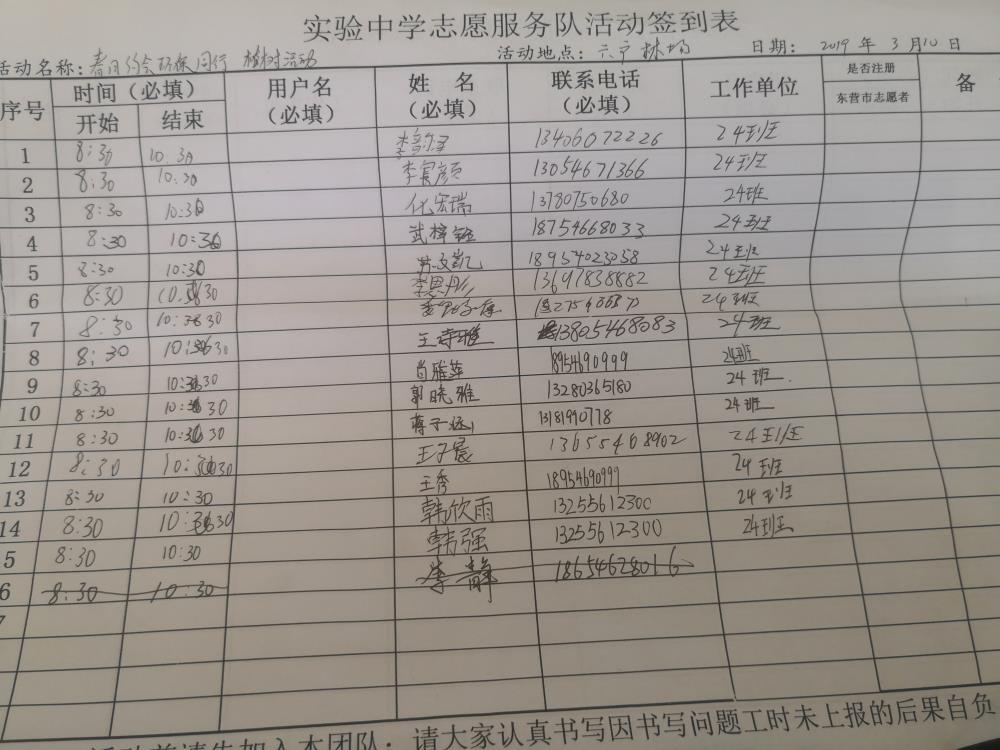 实验中学志愿服务队活动签到表
活动名称：春日约会 环保同行 植树活动 活动地点：六户林场 日期：2019年3月10日
序号 时间（必填） 用户名（必填） 姓名（必填） 联系电话（必填） 工作单位 是否注册 备
开始 结束 东营市志愿者
1 8:30 10:30 13406072226 24班
2 8:30 10:30 李宾颜 13054671366 24班
3 8:30 10:30 化宏瑞 13780750680 24班
4 8:30 10:30 武梓钰 18754668033 24班
5 8:30 10:30 苏文凯 18954023058 24班
6 8:30 10:30 李思彤 13697838882 24班
24班
7 8:30 10:30 王诗雅 13805468083 24班
8 8:30 10:30 肖雅萍 18954690999 24班
9 8:30 10:30 郭晓雅 13280365180 24班
10 8:30 10:30 蒋子涵 13181990778 24班
11 8:30 10:30 王子宸 13655468902 24班
12 8:30 10:30 王秀 18954690999 24班
13 8:30 10:30 韩欣雨 13255612300 24班
14 8:30 10:30 韩强 13255612300 24班
5 8:30 10:30 李静 18654628016
6 8:30 10:30
7
活动前请先加入本团队；请大家认真书写因书写问题工时未上报的后果自负